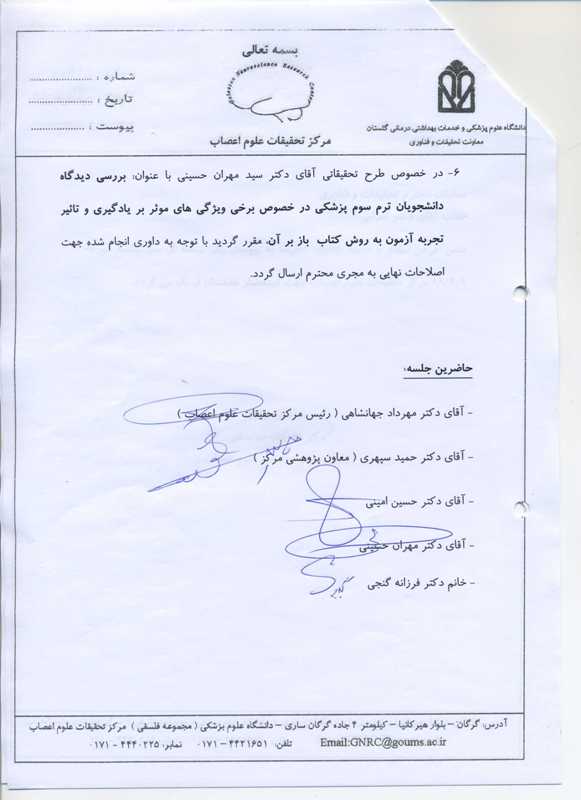 بسمه تعالی
Golestan Neuroscience Research Center
مرکز تحقیقات علوم اعصاب
شماره : ......................
تاریخ : ......................
پیوست : ..................
دانشگاه علوم پزشکی و خدمات بهداشتی درمانی گلستان
معاونت تحقیقات و فناوری
۶- در خصوص طرح تحقیقاتی آقای دکتر سید مهران حسینی با عنوان: بررسی دیدگاه
دانشجویان ترم سوم پزشکی در خصوص برخی ویژگی های موثر بر یادگیری و تاثیر
تجربه آزمون به روش کتاب باز بر آن، مقرر گردید با توجه به داوری انجام شده جهت
اصلاحات نهایی به مجری محترم ارسال گردد.
حاضرین جلسه:
- آقای دکتر مهرداد جهانشاهی ( رئیس مرکز تحقیقات علوم اعصاب )
- آقای دکتر حمید سپهری ( معاون پژوهشی مرکز )
- آقای دکتر حسین امینی
- آقای دکتر مهران حسینی
- خانم دکتر فرزانه گنجی
آدرس: گرگان – بلوار هیرکانیا – کیلومتر ۴ جاده گرگان ساری – دانشگاه علوم پزشکی ( مجموعه فلسفی ) مرکز تحقیقات علوم اعصاب
تلفن: ۴۴۲۱۶۵۱ – ۰۱۷۱ نمابر: ۴۴۴۰۲۲۵ - ۰۱۷۱ Email:GNRC@goums.ac.ir